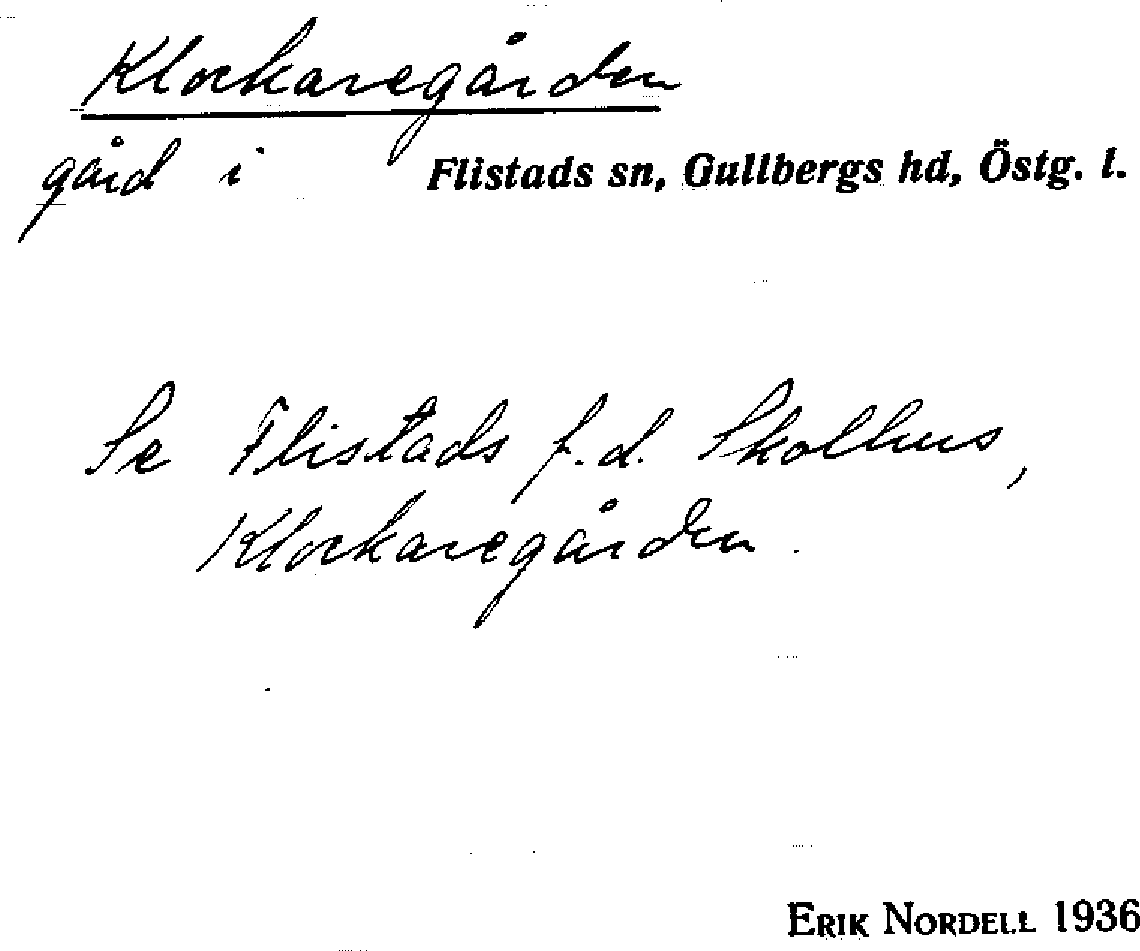 Klockaregården
gård i Flistads sn, Gullbergs hd, Östg. l.
Se Flistads f.d. Skolhus,
Klockaregården.
ERIK NORDELL 1936